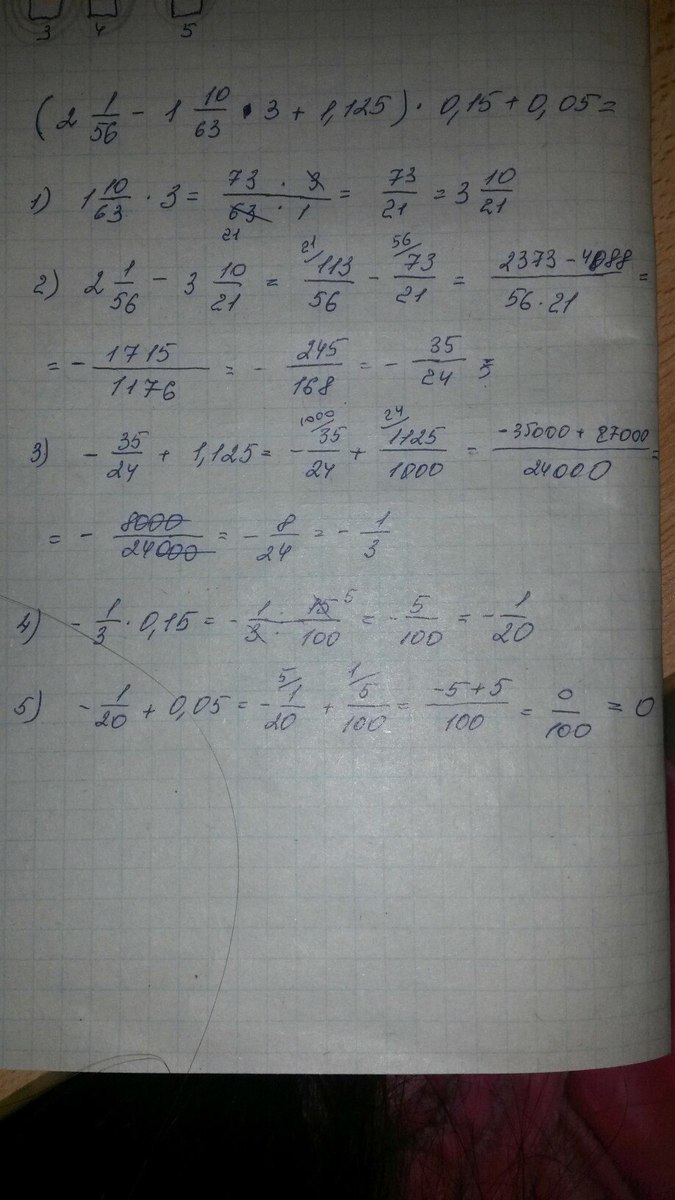 3 4 5
(2 1/56 − 1 10/63 · 3 + 1,125) · 0,15 + 0,05 =
1) 1 10/63 · 3 = 73 · 3 / 63 · 1 = 73/21 = 3 10/21
21
2) 2 1/56 − 3 10/21 = 21/ 113/56 − 56/ 73/21 = 2373 − 4088 / 56 · 21 =
= − 1715/1176 = − 245/168 = − 35/24 =
3) − 35/24 + 1,125 = − 1000/ 35/24 + 24/ 1125/1000 = −35000 + 27000 / 24000 =
= − 8000/24000 = − 8/24 = − 1/3
4) − 1/3 · 0,15 = − 1 · 15 5 / 3 · 100 = − 5/100 = − 1/20
5) − 1/20 + 0,05 = − 5/ 1/20 + 1/ 5/100 = −5 + 5 / 100 = 0/100 = 0